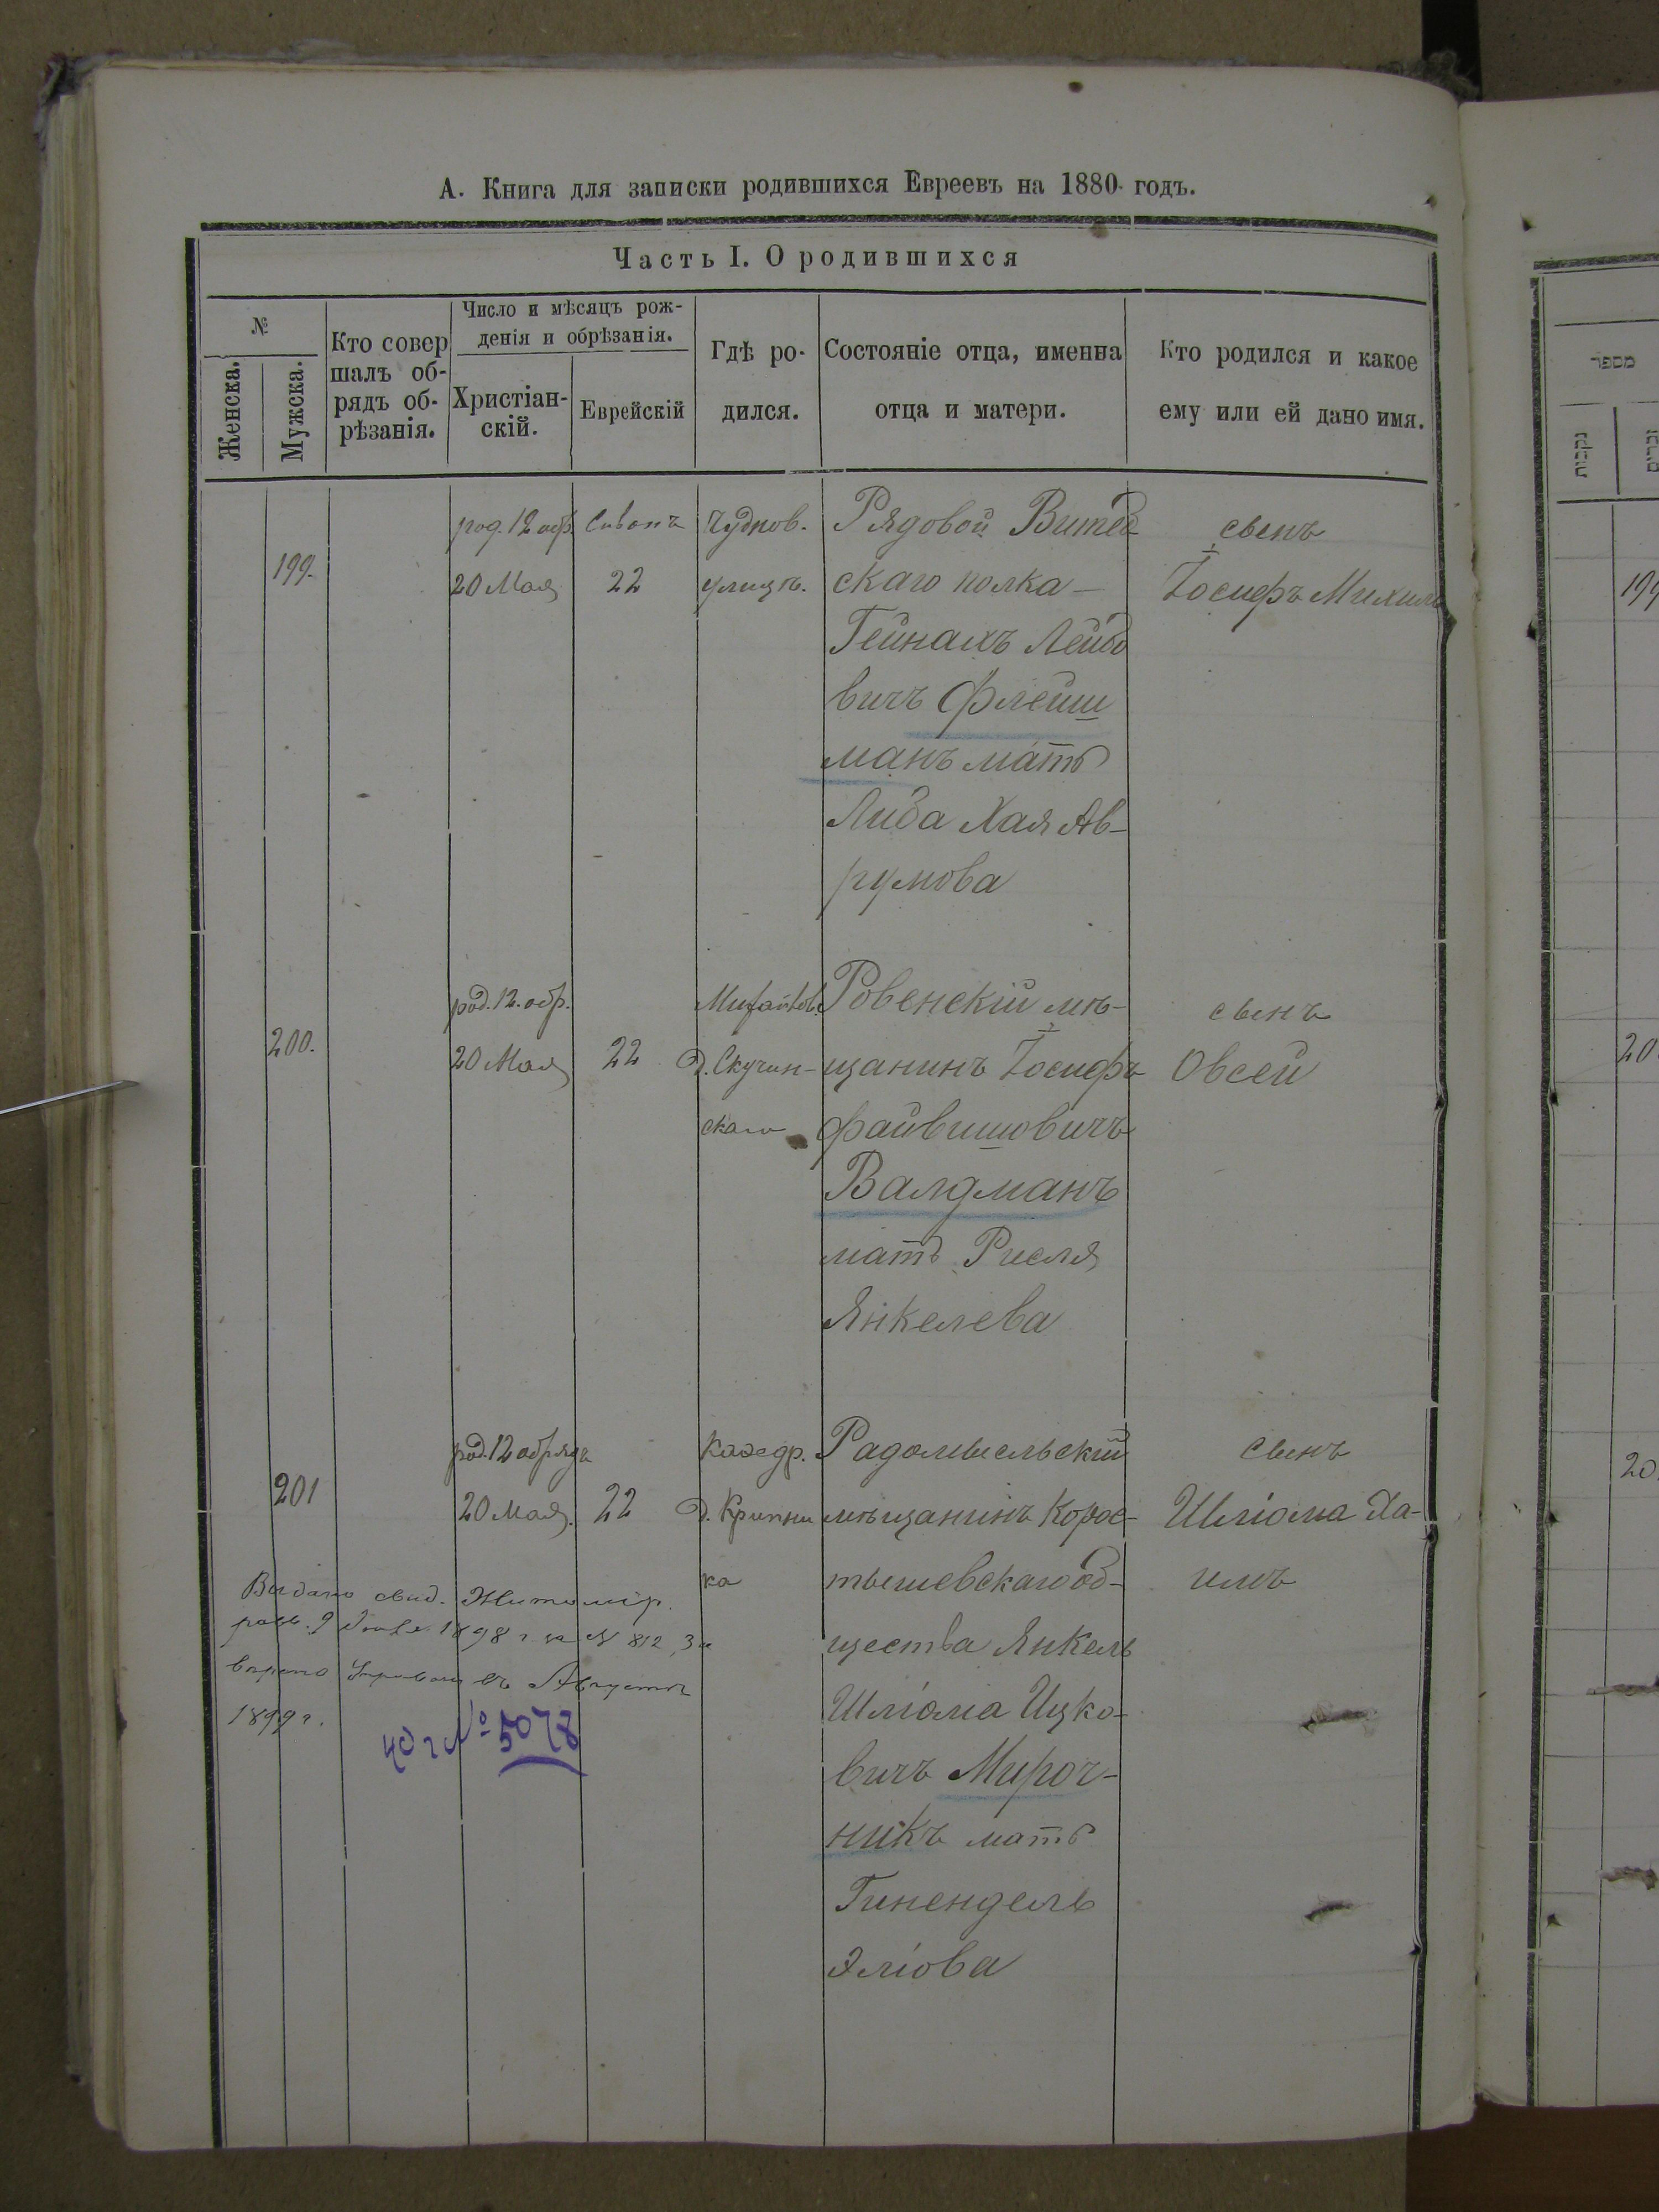 А. Книга для записки родившихся Евреевъ на 1880 годъ.
Часть I. О родившихся
№
Женска.
Мужска.
Кто совер
шалъ об-
рядъ об-
рѣзанія.
Число и мѣсяцъ рож-
денія и обрѣзанія.
Христіан-
скій.
Еврейскій
Гдѣ ро-
дился.
Состояніе отца, именна
отца и матери.
Кто родился и какое
ему или ей дано имя.
199.
род. 12 обр.
20 Мая
Сиванъ
22
Чуднов.
улицѣ.
Рядовой Витеб
скаго полка —
Гейнахъ Лейбо
вичъ Флейш
манъ мать
Либа Хая Ав-
румова
сынъ
Іосифъ Михиль
200.
род. 12. обр.
20 Мая
22
д. Скучин-
скаго
Ровенскій мѣ-
щанинъ Іосифъ
Файвишовичъ
Валдманъ
мать Рисля
Янкелева
сынъ
Овсей
201
род. 12 обряда
20 Мая.
22
Кафедр.
д. Крипни
ка
Радомысльскій
мѣщанинъ Корос-
тышевскаго об-
щества Янкель
Шліома Ицко-
вичъ Мироч-
никъ мать
Гинендель
Эліова
сынъ
Шліома Ха-
имъ
Выдано свид. Житомір.
равв. 9 1898 г. за № 812, За
въ Августѣ
1899 г.
№ 5078
מספר
נקבות
זכרים
199
20
20